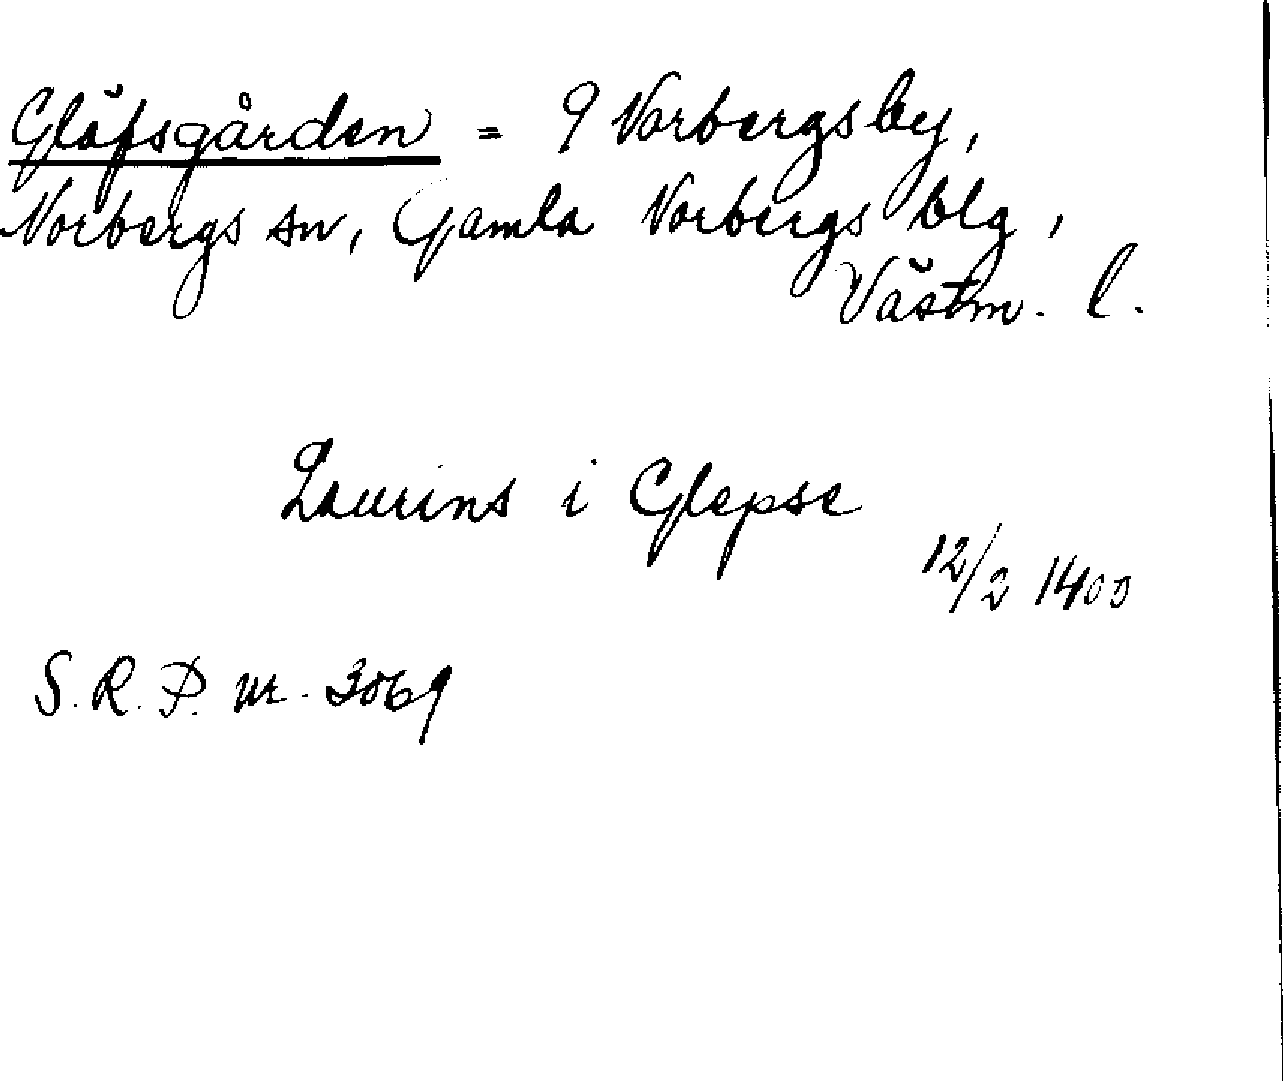 Gläfsgården = 9 Norbergsby,
Norbergs sn, Gamla Norbergs blg,
Västm. l.
Laurins i Glepse
12/2 1400
S. R. P. nr. 3069